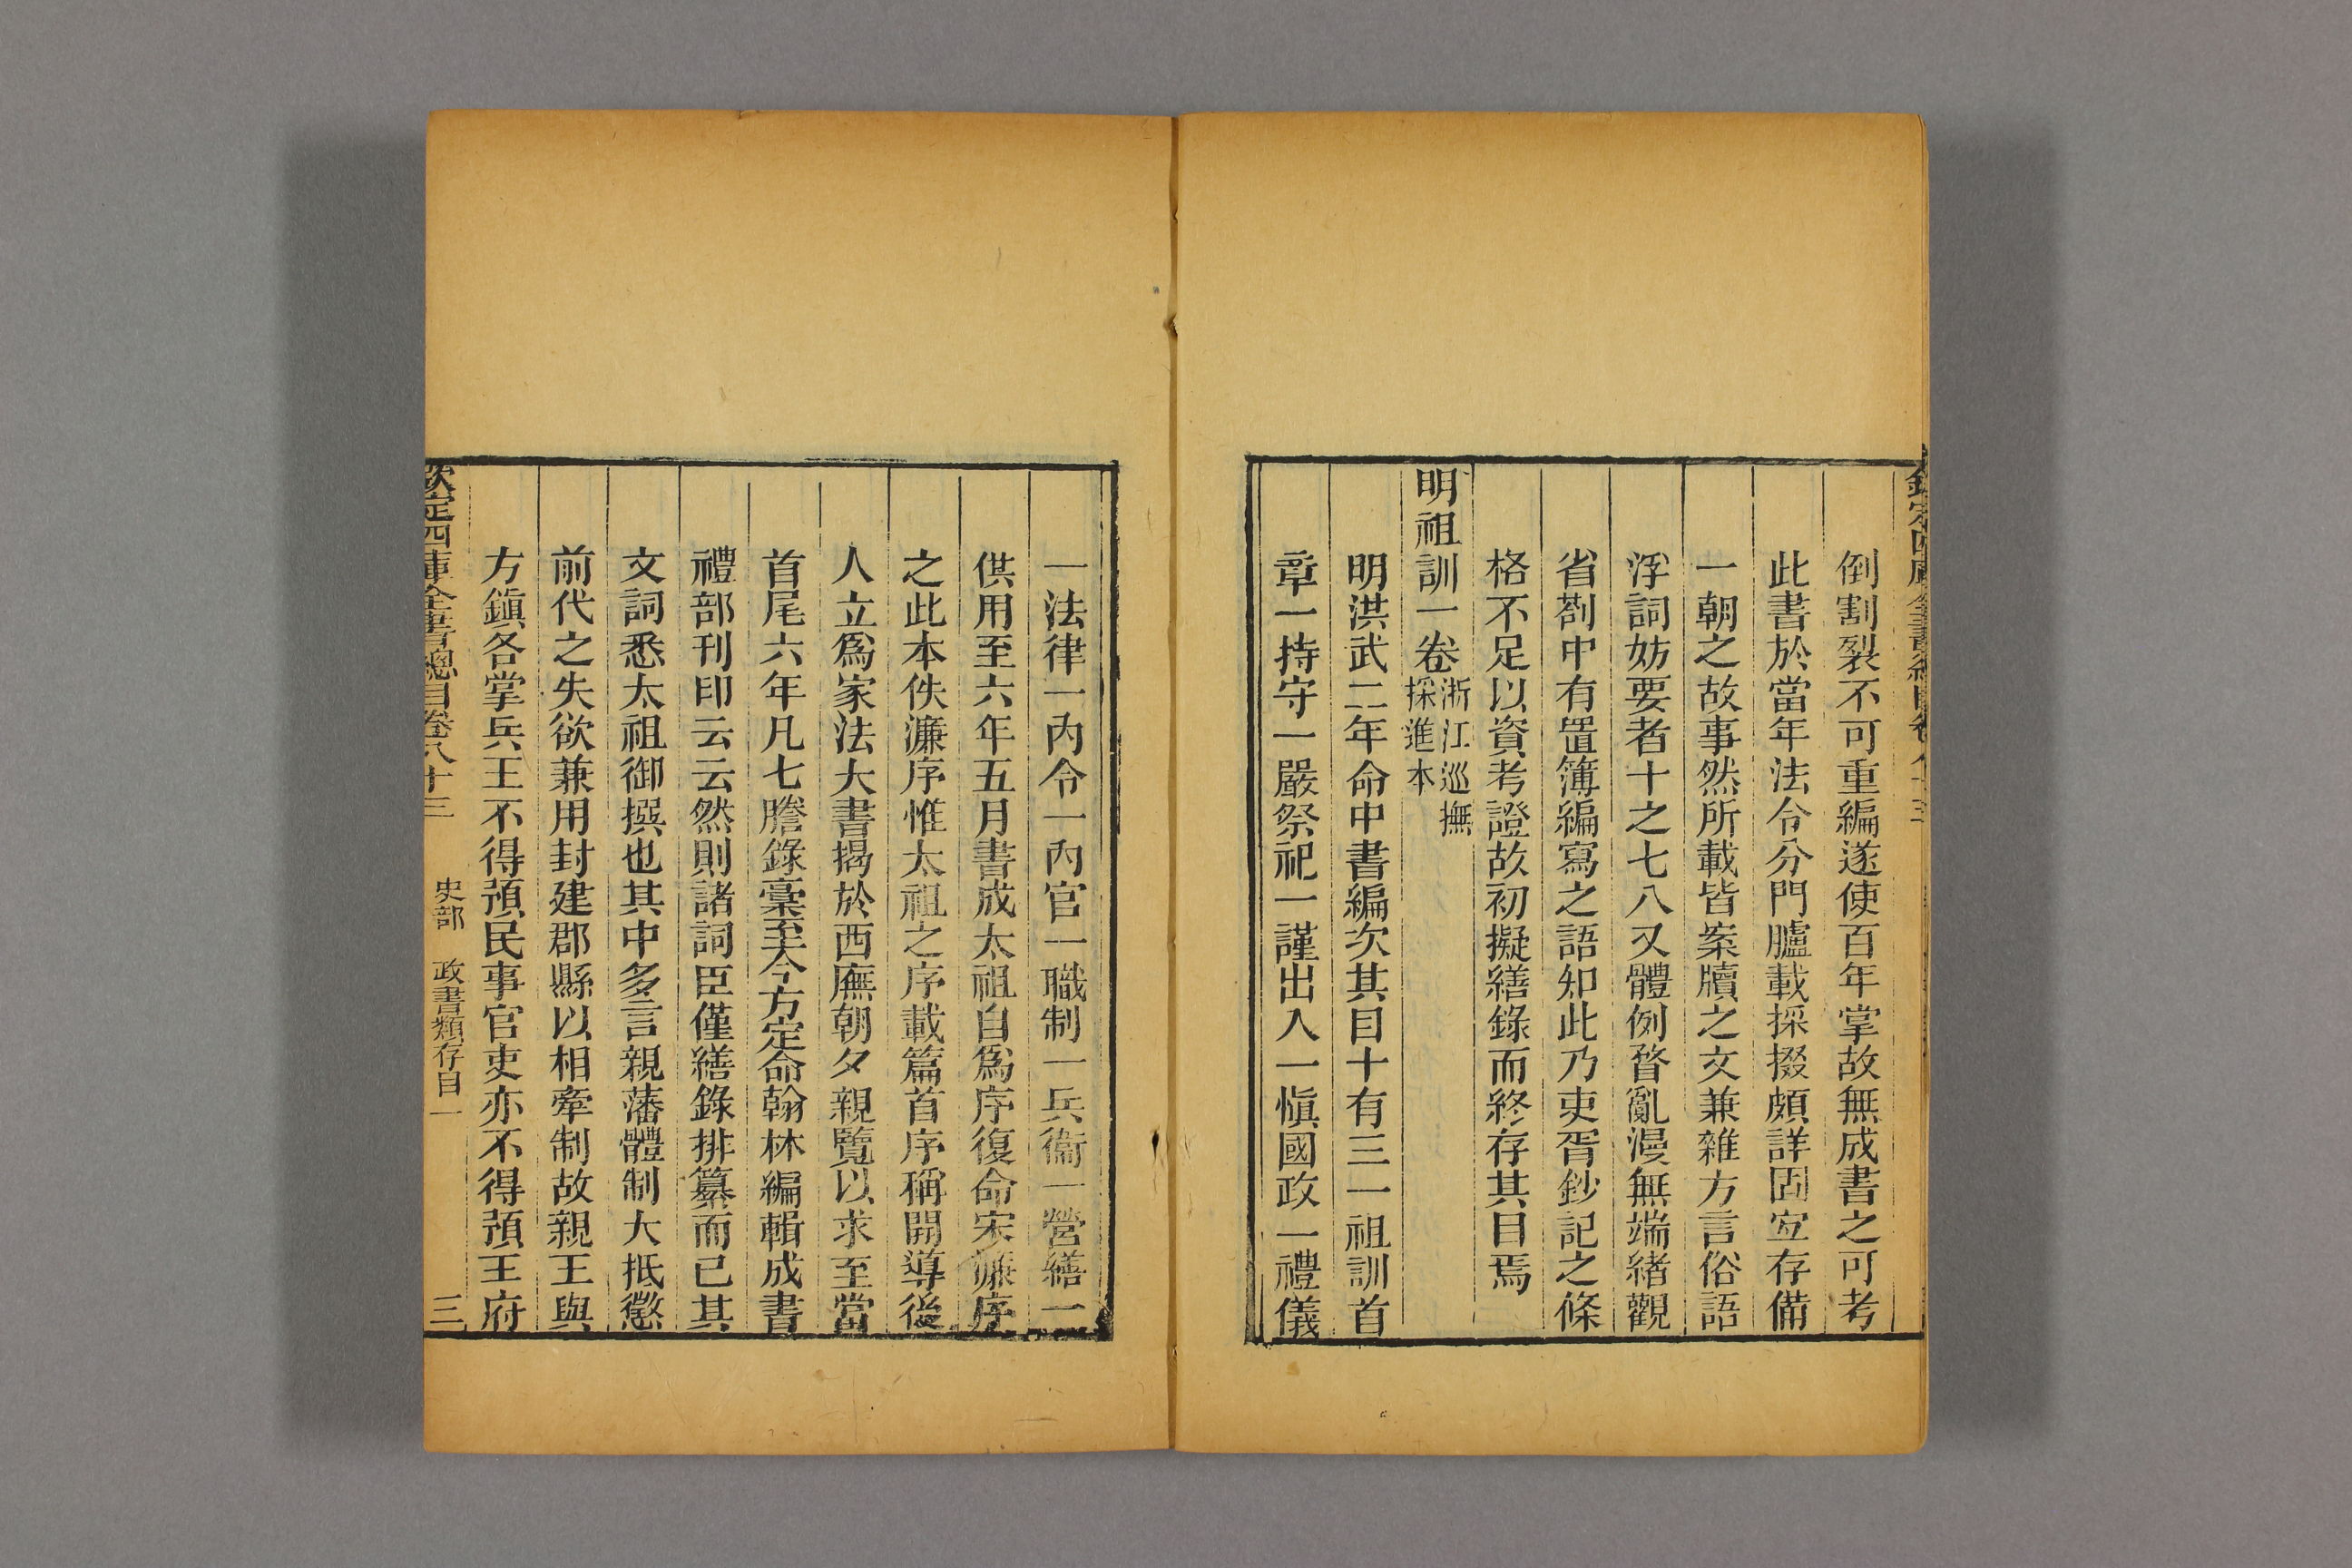 倒割裂不可重編遂使百年掌故無成書之可考
此書於當年法令分門臚載採掇頗詳固宜存備
一朝之故事然所載皆案牘之文兼雜方言俗語
浮詞妨要者十之七八又體例瞀亂漫無端緒觀
省劄中有置簿編寫之語知此乃吏胥鈔記之條
格不足以資考證故初擬繕錄而終存其目焉
明祖訓一卷浙江巡撫
採進本
明洪武二年命中書編次其目十有三一祖訓首
章一持守一嚴祭祀一謹出入一慎國政一禮儀
一法律一內令一內官一職制一兵衞一營繕一
供用至六年五月書成太祖自爲序復命宋濂序
之此本佚濂序惟太祖之序載篇首序稱開導後
人立爲家法大書揭於西廡朝夕親覽以求至當
首尾六年凡七謄錄稾至今方定命翰林編輯成書
禮部刊印云云然則諸詞臣僅繕錄排纂而已其
文詞悉太祖御撰也其中多言親藩體制大抵懲
前代之失欲兼用封建郡縣以相牽制故親王與
方鎭各掌兵王不得預民事官吏亦不得預王府
欽定四庫全書總目卷八十三 史部 政書類存目一 三